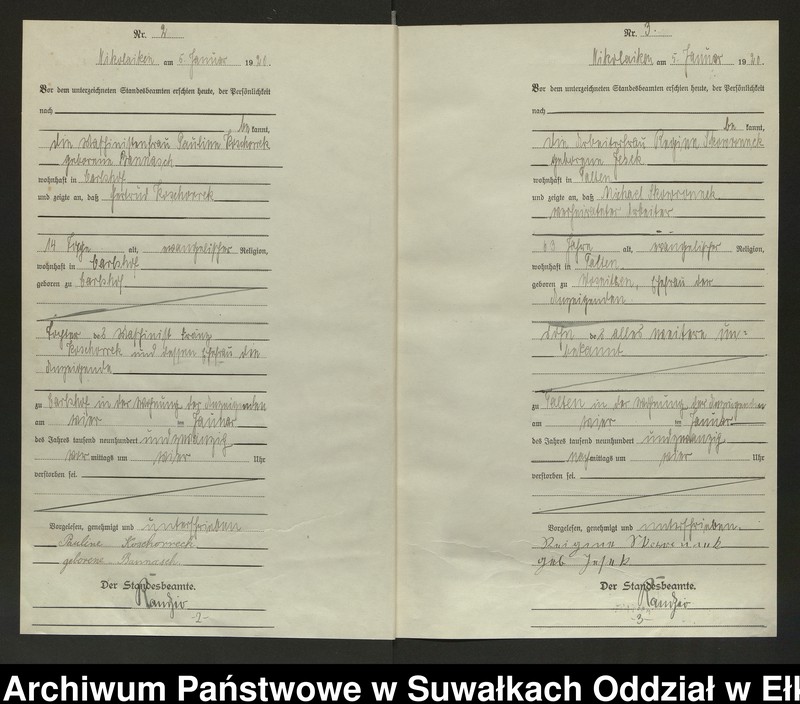 Nr. 2
Mikolaiken am 5. Januar 1920.
Vor dem unterzeichneten Standesbeamten erschien heute, der Persönlichkeit
nach
bekannt,
die Maschinistenfrau Pauline Koschorrek
geborene Bannasch
wohnhaft in Carlshof
und zeigte an, daß Gertrud Koschorrek
14 Tage alt, evangelischer Religion,
wohnhaft in Carlshof
geboren zu Carlshof
Tochter des Maschinist Franz
Koschorrek und dessen Ehefrau die
Anzeigende
zu Carlshof in der Wohnung der Anzeigenden
am vier im Januar
des Jahres tausend neunhundert undzwanzig
vormittags um vier Uhr
verstorben sei.
Vorgelesen, genehmigt und unterschrieben
Pauline Koschorreck
geborene Bannasch
Der Standesbeamte.
-2-
Nr. 3.
Mikolaiken am 5. Januar 1920.
Vor dem unterzeichneten Standesbeamten erschien heute, der Persönlichkeit
nach
bekannt,
die Arbeiterfrau Regine Skowronnek
geborene Jesek
wohnhaft in Talten
und zeigte an, daß Michael Skowronnek
verheirateter Arbeiter
63 Jahre alt, evangelischer Religion,
wohnhaft in Talten
geboren zu Ehefrau der
Anzeigenden
Sohn des alles weitere un=
bekannt
zu Talten in der Wohnung der Anzeigenden
am vier im Januar
des Jahres tausend neunhundert undzwanzig
nachmittags um vier Uhr
verstorben sei.
Vorgelesen, genehmigt und unterschrieben.
Reigine Skowronek
geb. Jesek
Der Standesbeamte.
-3-
Archiwum Państwowe w Suwałkach Oddział w Ełk